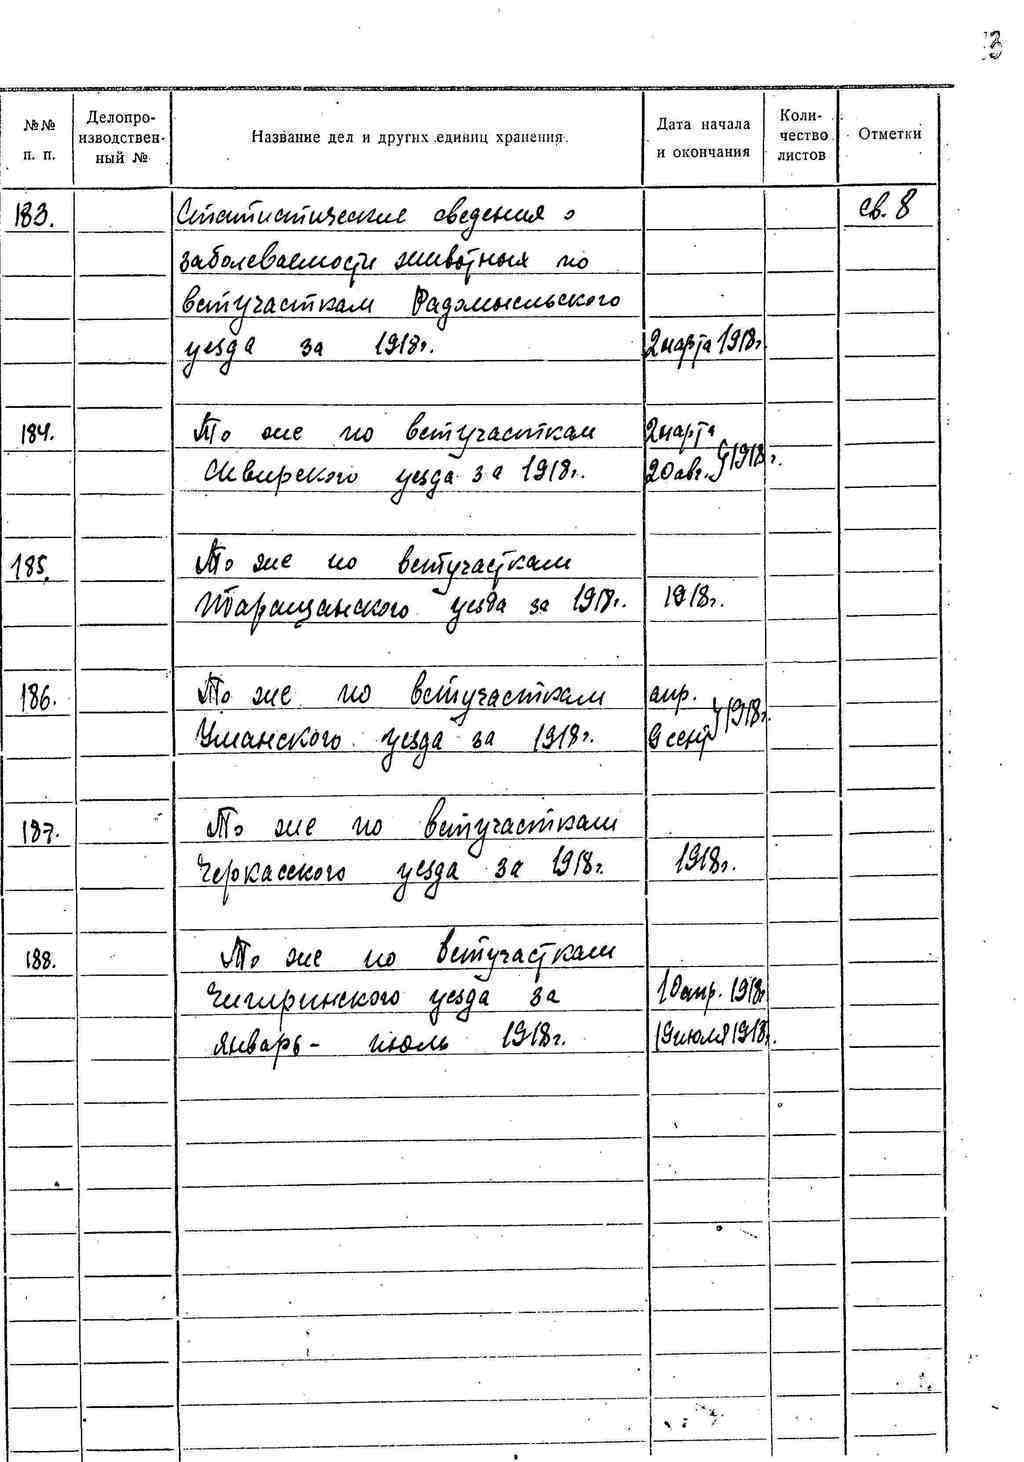 №№ п. п.
Делопроизводственный №
Название дел и других единиц хранения.
Дата начала и окончания
Количество листов
Отметки
183. Статистические сведения о св. 8
заболеваемости животных по
ветучасткам Радомысльского
уезда за 1918г. 2 марта 1918г.
184. То же по ветучасткам 2 марта
Сквирского уезда за 1918г. 20 авг. 1918г.
185. То же по ветучасткам
Таращанского уезда за 1918г. 1918г.
186. То же по ветучасткам апр.
Уманского уезда за 1918г. 9 сент 1918г.
187. То же по ветучасткам
Черкасского уезда за 1918г. 1918г.
188. То же по ветучасткам
Чигиринского уезда за 10 апр. 1918г
январь - июль 1918г. 19 июля 1918г.